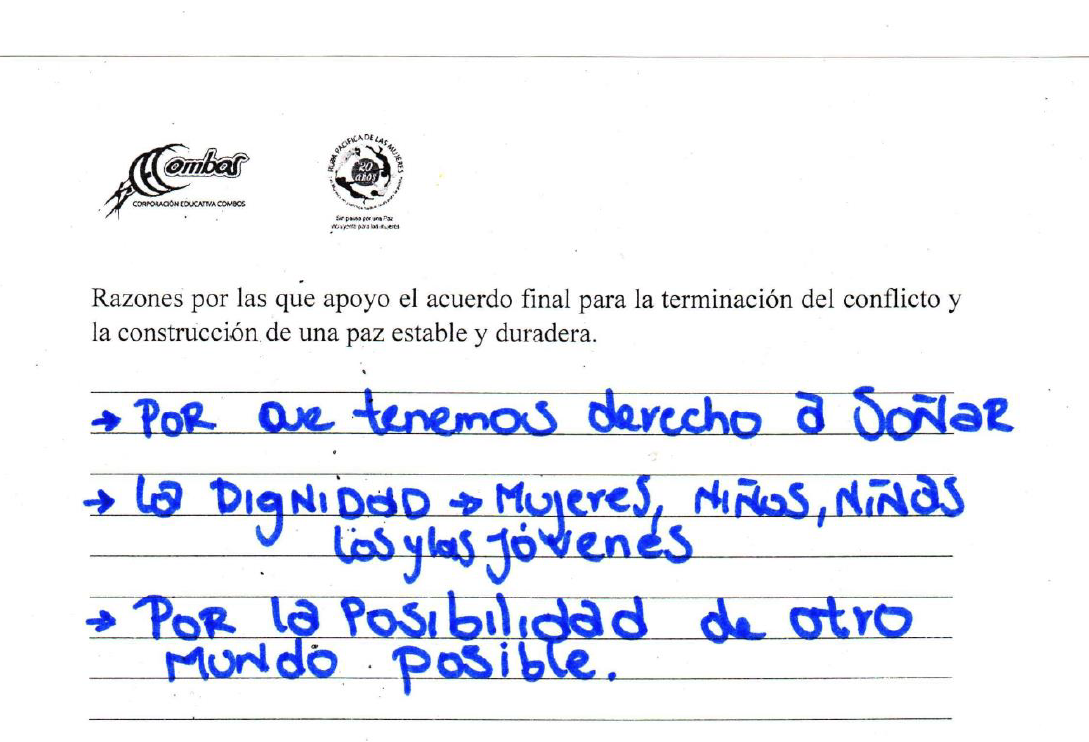 Combos
CORPORACIÓN EDUCATIVA COMBOS
RUTA PACIFICA DE LAS MUJERES
20
años
Sin pausa por una Paz
incluyente para las mujeres
Razones por las que apoyo el acuerdo final para la terminación del conflicto y
la construcción de una paz estable y duradera.
→ POR QUE tenemos derecho a SOÑAR
→ La DIGNIDAD → Mujeres, NIÑOS, NIÑAS
Los y las jóvenes
→ POR la POSIBILIDAD de otro
MUNDO posible.